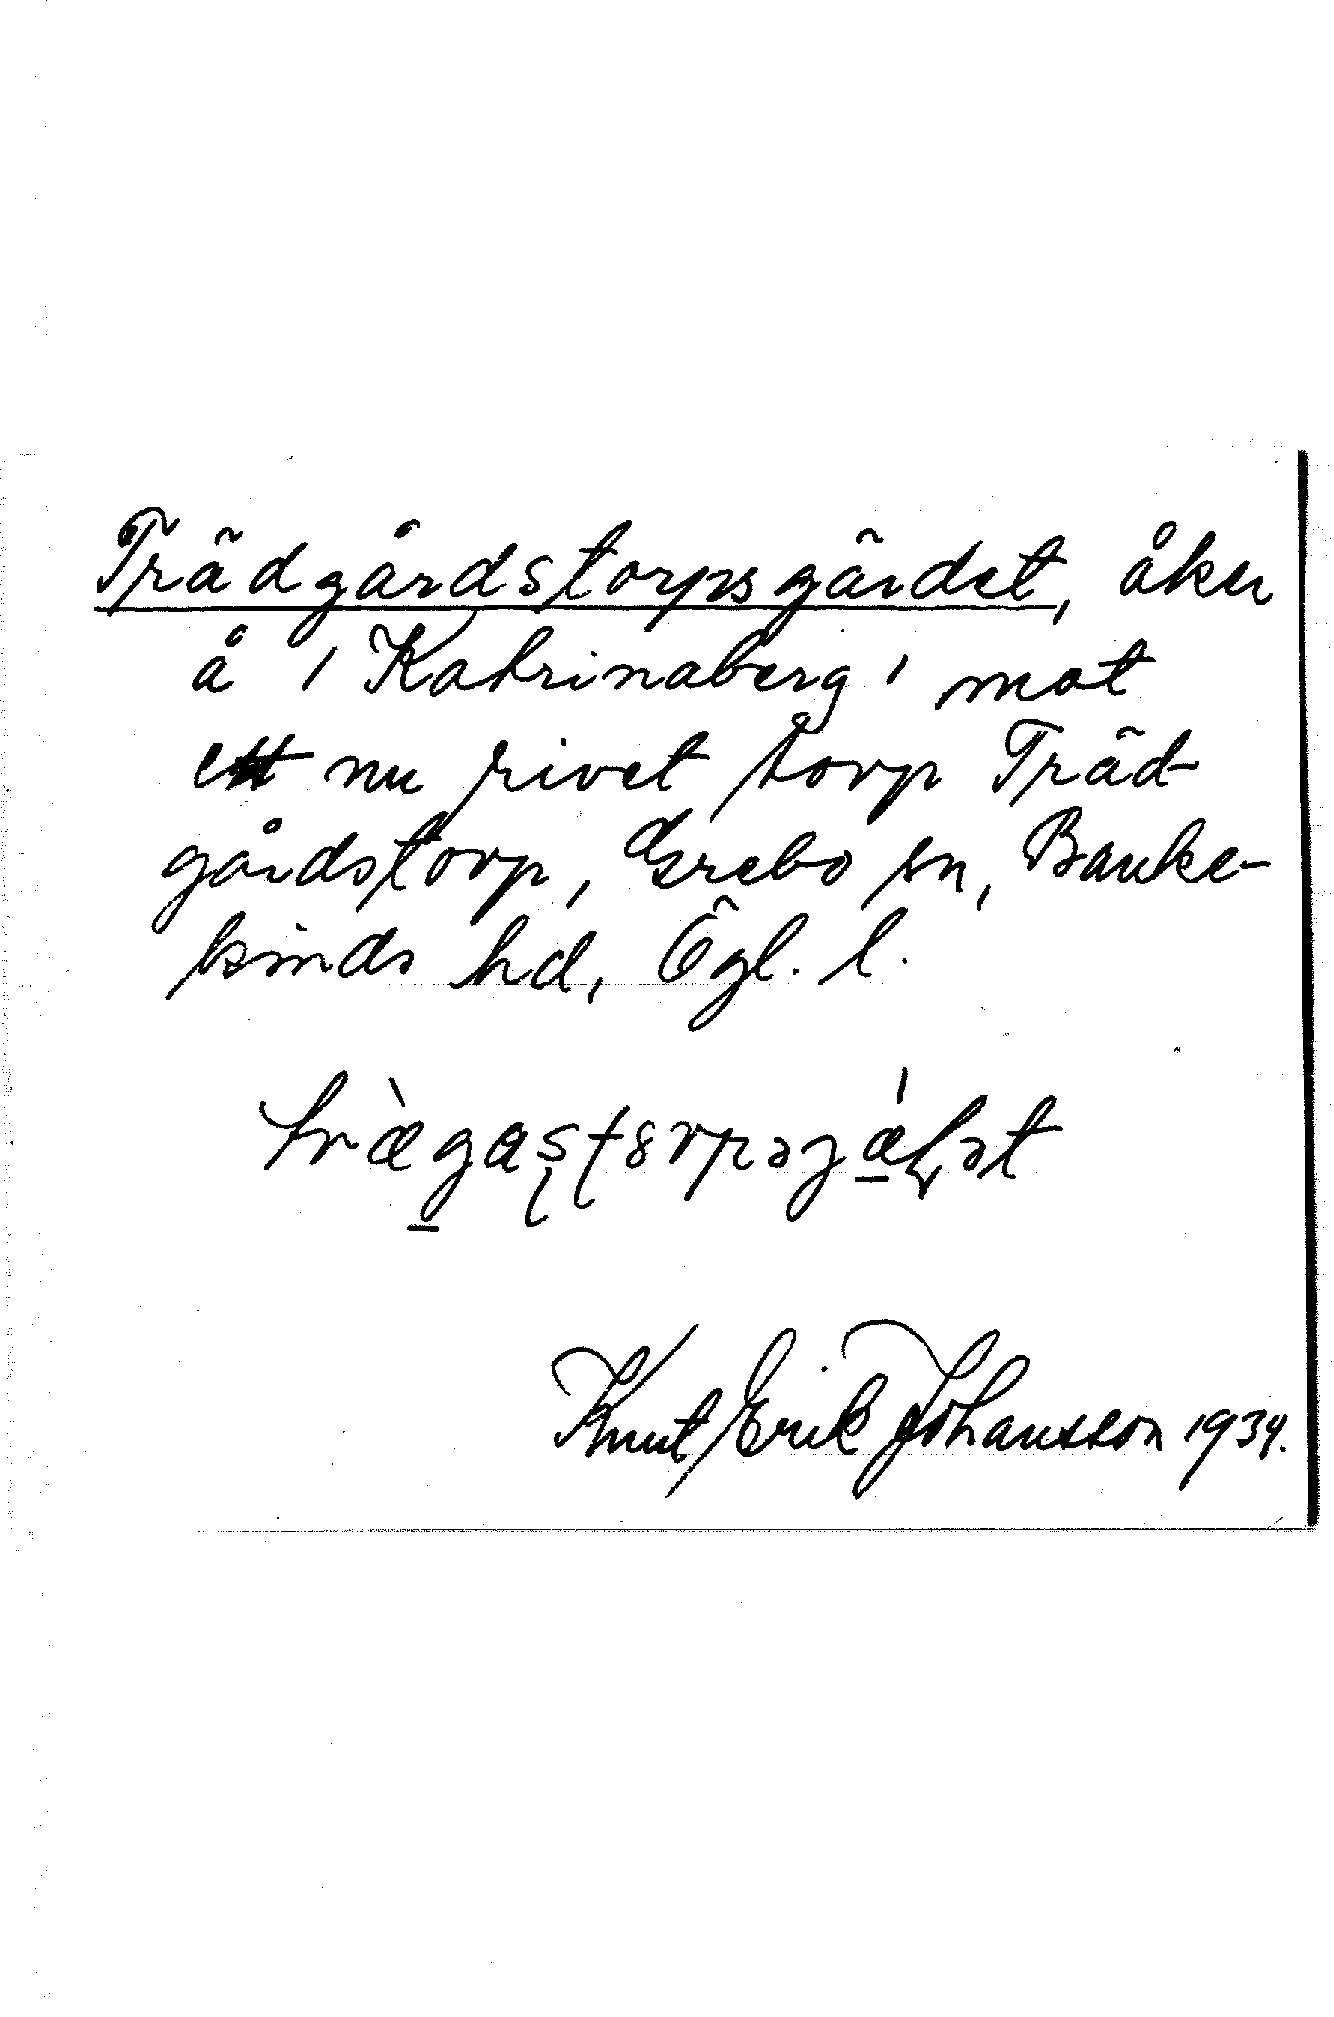 Trädgårdstorpsgärdet, åker
å / Katrinaberg / mot
ett nu rivet torp Träd-
gårdstorp, Grebo sn, Banke-
kinds hd, Ögl. l.
Knut/Erik Johansson 1934.